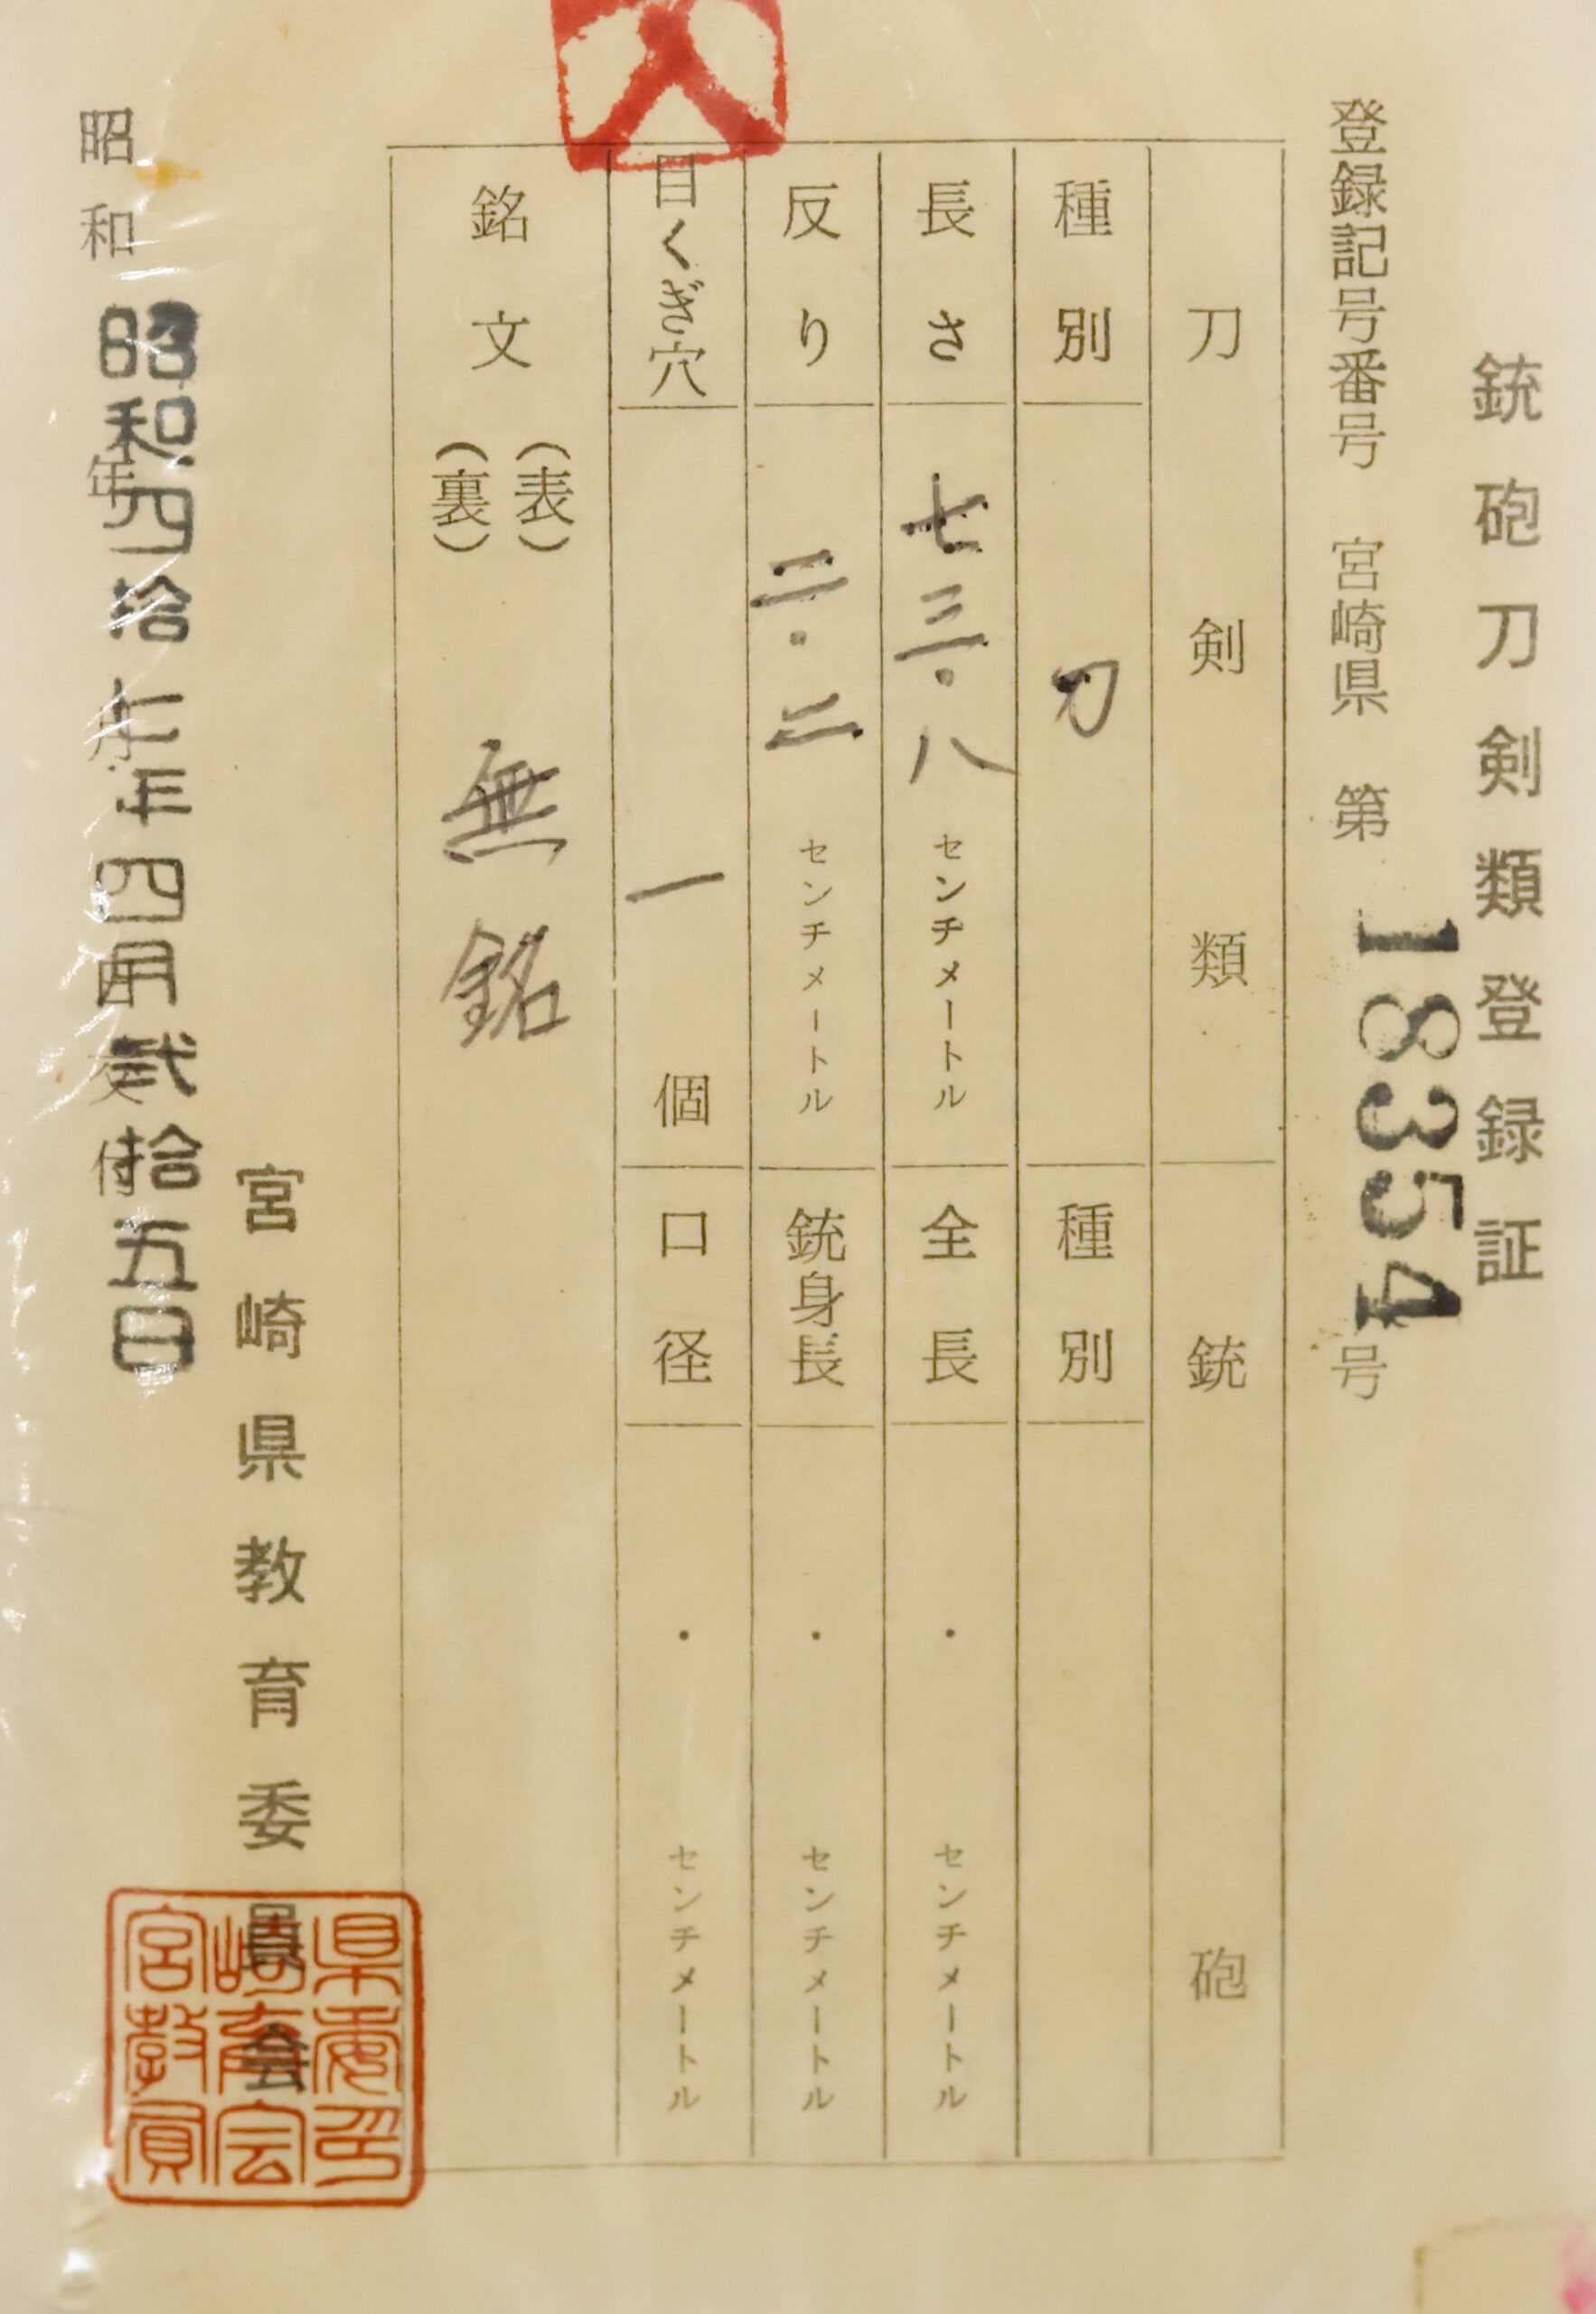 銃砲刀剣類登録証
登録記号番号 宮崎県 第 18354 号
刀剣類
銃砲
種別 刀
種別
長さ 七三・八 センチメートル
全長 ・ センチメートル
反り 二・二 センチメートル
銃身長 ・ センチメートル
目くぎ穴 一 個
口径 ・ センチメートル
銘文 (表)
(裏)
無銘
宮崎県教育委員会
昭和 年 月 日 交付
昭和四拾七年四月弐拾五日
県委印
崎育会
宮教員